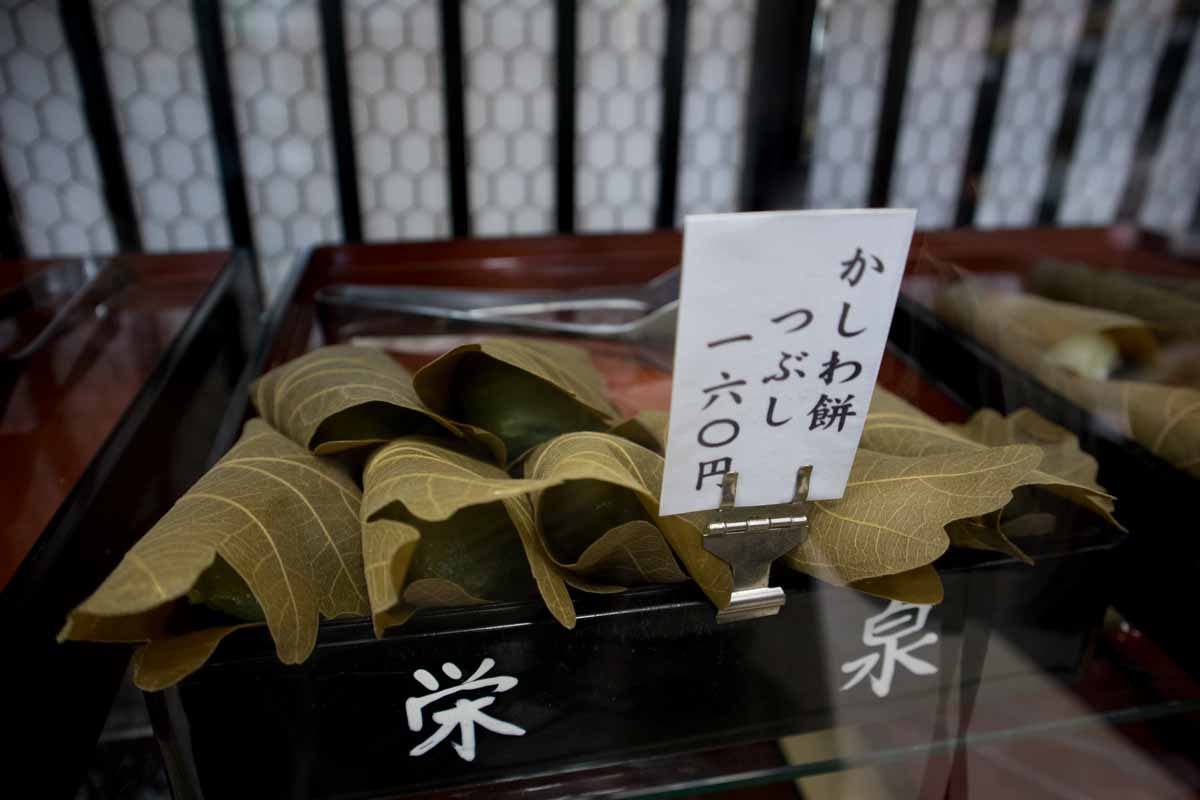 かしわ餅
つぶし
一六〇円
栄
泉